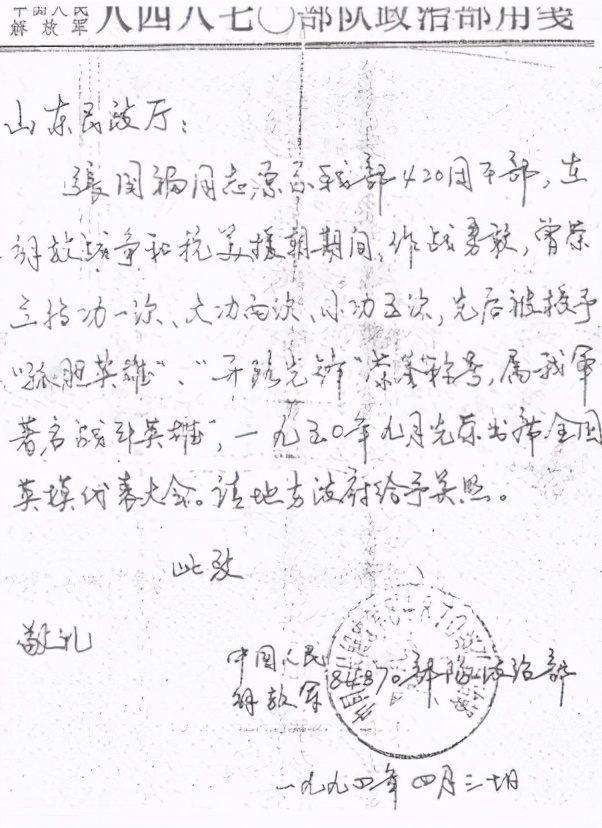 中国人民
解放军 八四八七〇部队政治部用笺
山东民政厅：
张闯福同志原系我部420团干部，在
解放战争和抗美援朝期间，作战勇敢，曾荣
立特功一次、大功两次、小功五次，先后被授予
“孤胆英雄”、“开路先锋”荣誉称号，属我军
著名战斗英雄”，一九五〇年九月光荣出席全国
英模代表大会。请地方政府给予关照。
此致
敬礼
中国人民
解放军 84870部队政治部
一九九四年四月三十日